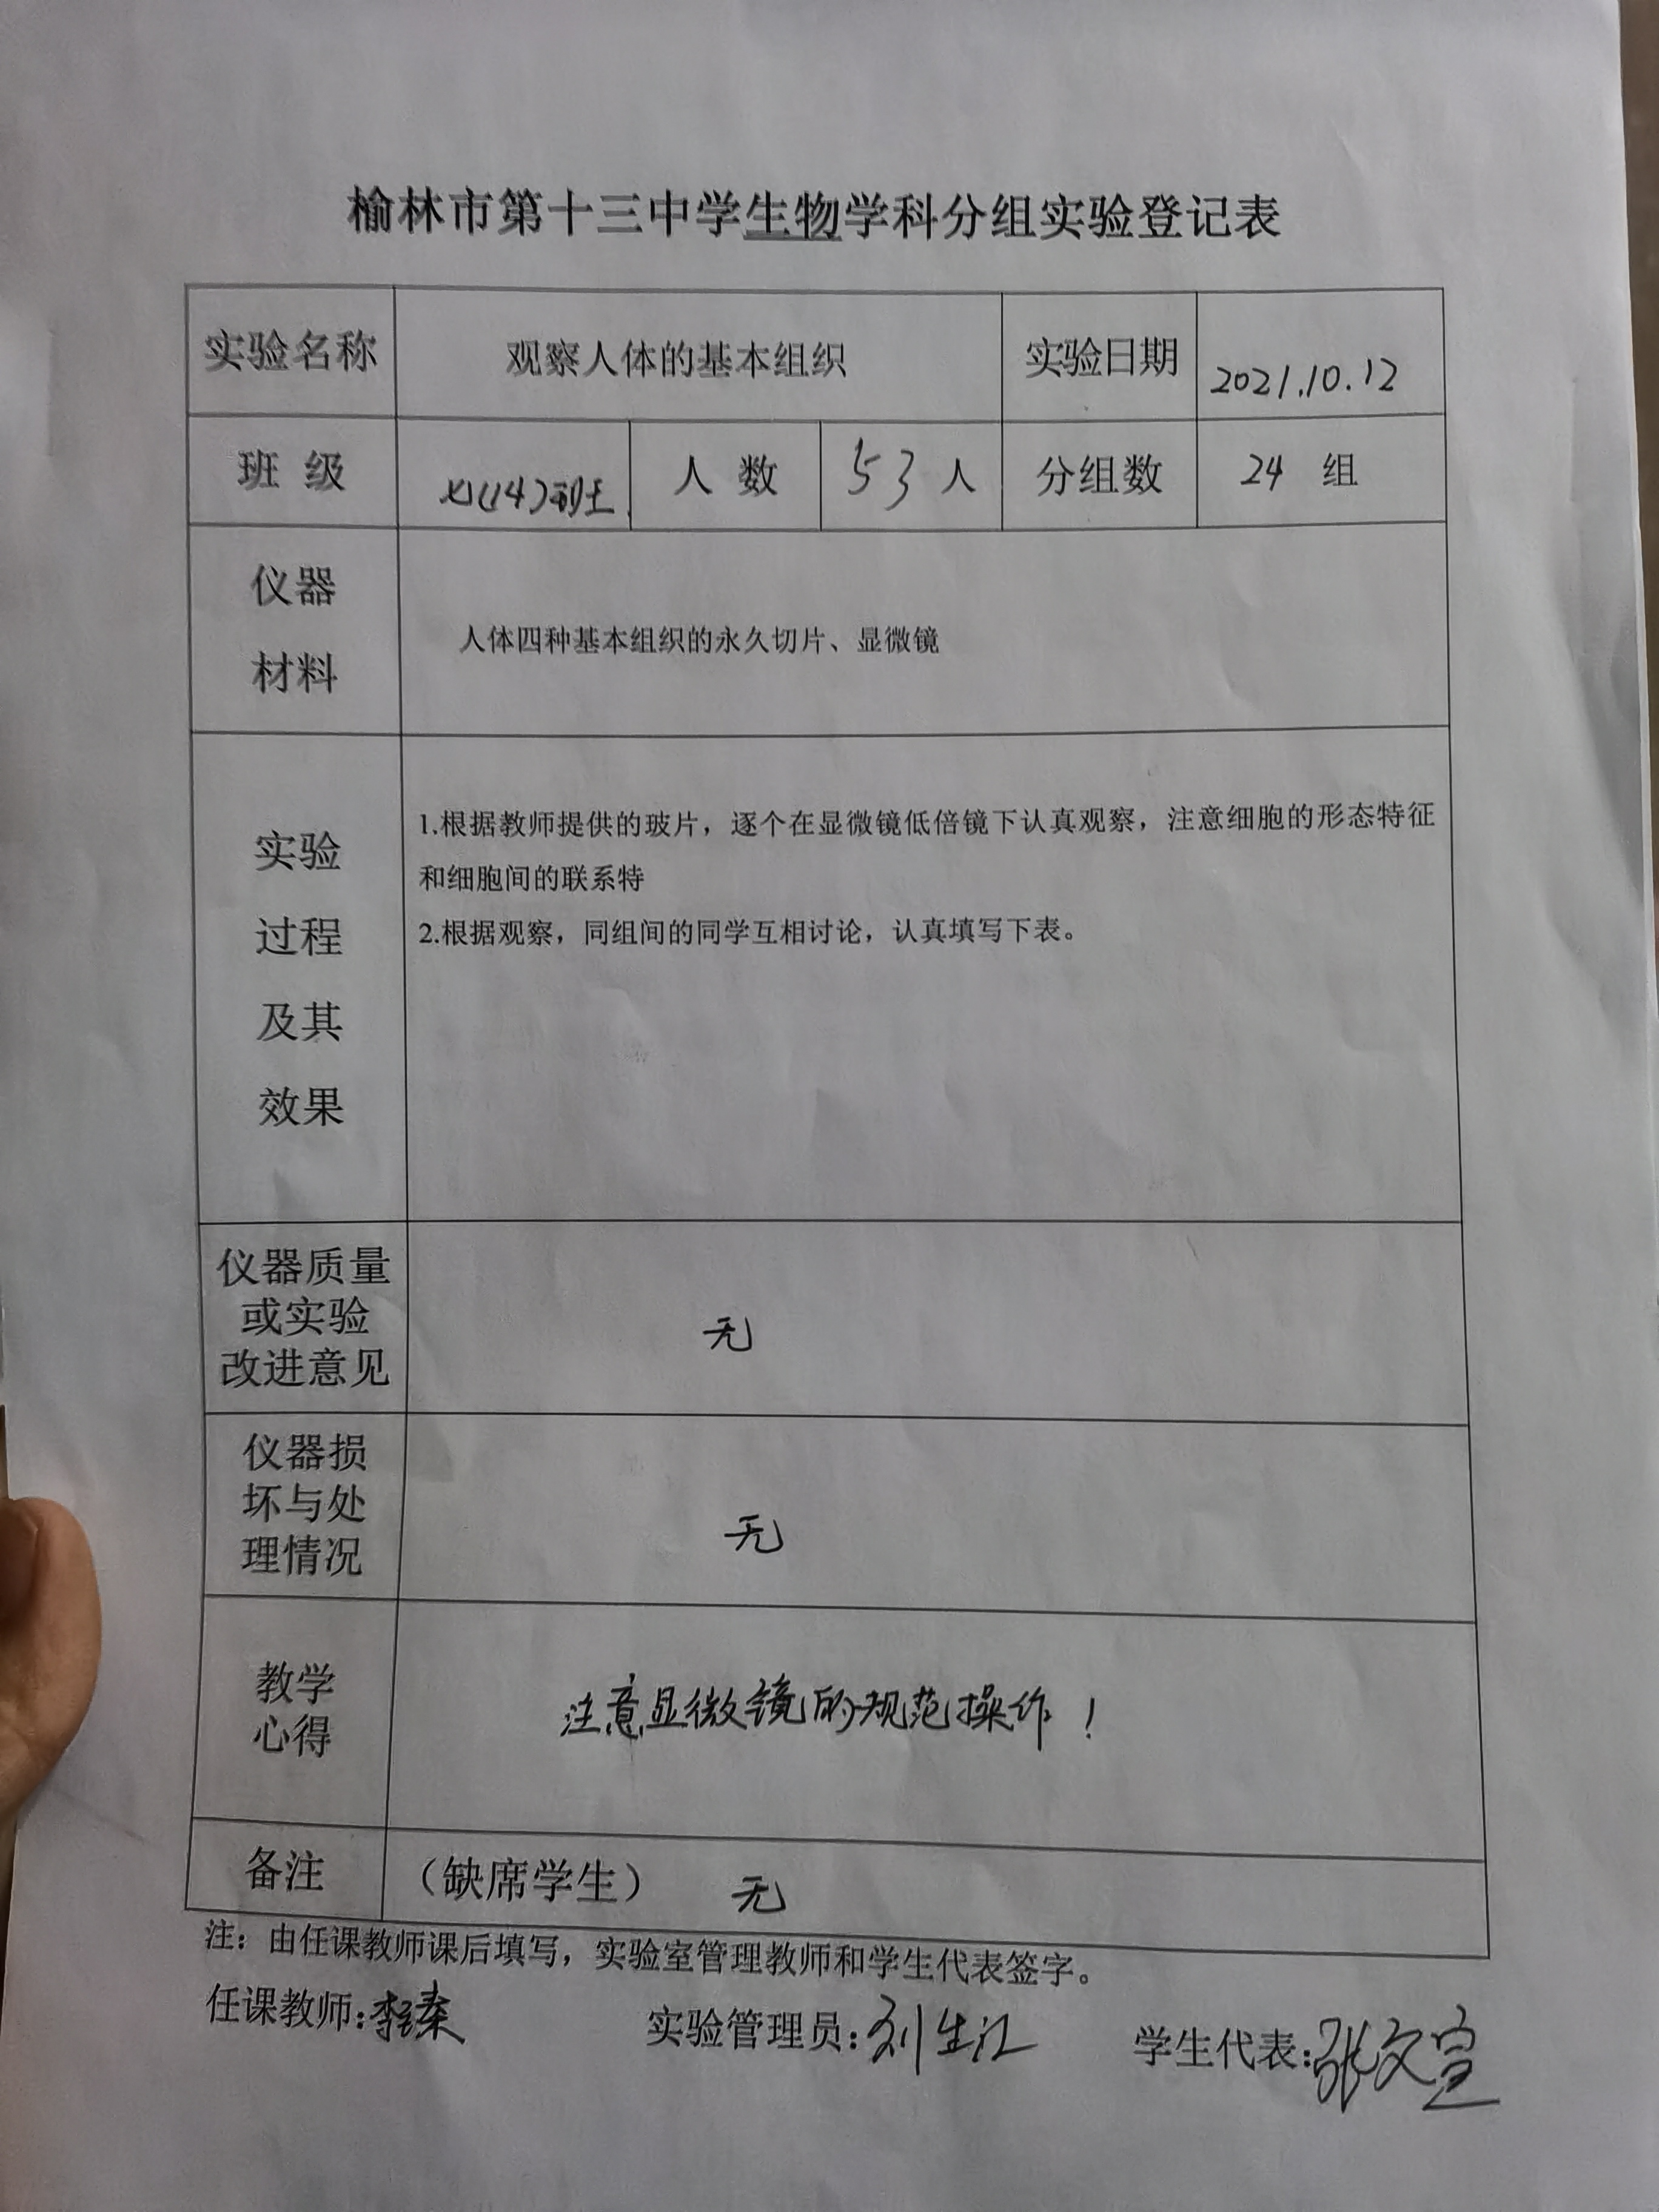 榆林市第十三中学生物学科分组实验登记表
实验名称 观察人体的基本组织 实验日期 2021.10.12
班 级 七(14) 人 数 53 人 分组数 24 组
仪器
材料
人体四种基本组织的永久切片、显微镜
实验
过程
及其
效果
1.根据教师提供的玻片，逐个在显微镜低倍镜下认真观察，注意细胞的形态特征
和细胞间的联系特
2.根据观察，同组间的同学互相讨论，认真填写下表。
仪器质量
或实验
改进意见
无
仪器损
坏与处
理情况
无
教学
心得
注意显微镜的规范操作！
备注 （缺席学生） 无
注：由任课教师课后填写，实验室管理教师和学生代表签字。
任课教师: 实验管理员:刘生江 学生代表:张文宣